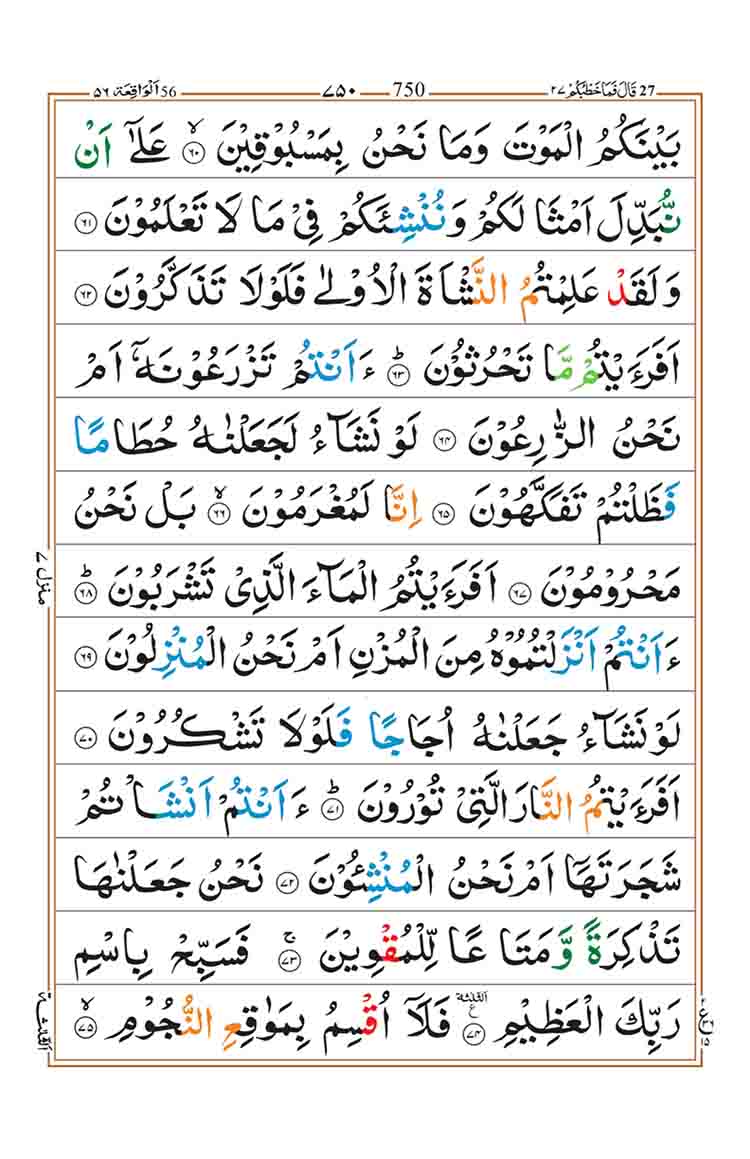 27 قَالَ فَمَا خَطْبُكُمْ ٢٧ 750 ٧٥٠ 56 اَلْوَاقِعَة ٥٦
بَيْنَكُمُ الْمَوْتَ وَمَا نَحْنُ بِمَسْبُوْقِيْنَ ۙ‏ ﴿٦٠﴾ عَلٰٓى اَنْ
نُّبَدِّلَ اَمْثَا لَكُمْ وَنُنْشِئَكُمْ فِىْ مَا لَا تَعْلَمُوْنَ ﴿٦١﴾
وَلَقَدْ عَلِمْتُمُ النَّشْاَةَ الْاُوْلٰى فَلَوْلَا تَذَكَّرُوْنَ ﴿٦٢﴾
اَفَرَءَيْتُمْ مَّا تَحْرُثُوْنَ ؕ ﴿٦٣﴾ ءَاَنْتُمْ تَزْرَعُوْنَهٗۤ اَمْ
نَحْنُ الزّٰرِعُوْنَ ﴿٦٤﴾ لَوْ نَشَآءُ لَجَعَلْنٰهُ حُطَامًا
فَظَلْتُمْ تَفَكَّهُوْنَ ﴿٦٥﴾ اِنَّا لَمُغْرَمُوْنَ ۙ ﴿٦٦﴾ بَلْ نَحْنُ
مَحْرُوْمُوْنَ ﴿٦٧﴾ اَفَرَءَيْتُمُ الْمَآءَ الَّذِىْ تَشْرَبُوْنَ ؕ ﴿٦٨﴾
ءَاَنْتُمْ اَنْزَلْتُمُوْهُ مِنَ الْمُزْنِ اَمْ نَحْنُ الْمُنْزِلُوْنَ ﴿٦٩﴾
لَوْ نَشَآءُ جَعَلْنٰهُ اُجَاجًا فَلَوْلَا تَشْكُرُوْنَ ﴿٧٠﴾
اَفَرَءَيْتُمُ النَّارَ الَّتِىْ تُوْرُوْنَ ؕ ﴿٧١﴾ ءَاَنْتُمْ اَنْشَاْتُمْ
شَجَرَتَهَاۤ اَمْ نَحْنُ الْمُنْشِئُوْنَ ﴿٧٢﴾ نَحْنُ جَعَلْنٰهَا
تَذْكِرَةً وَّمَتَاعًا لِّلْمُقْوِيْنَ ۚ ﴿٧٣﴾ فَسَبِّحْ بِاسْمِ
رَبِّكَ الْعَظِيْمِ ﴿٧٤﴾ فَلَاۤ اُقْسِمُ بِمَوٰقِعِ النُّجُوْمِ ۙ ﴿٧٥﴾
منزل ٧
الثلثة